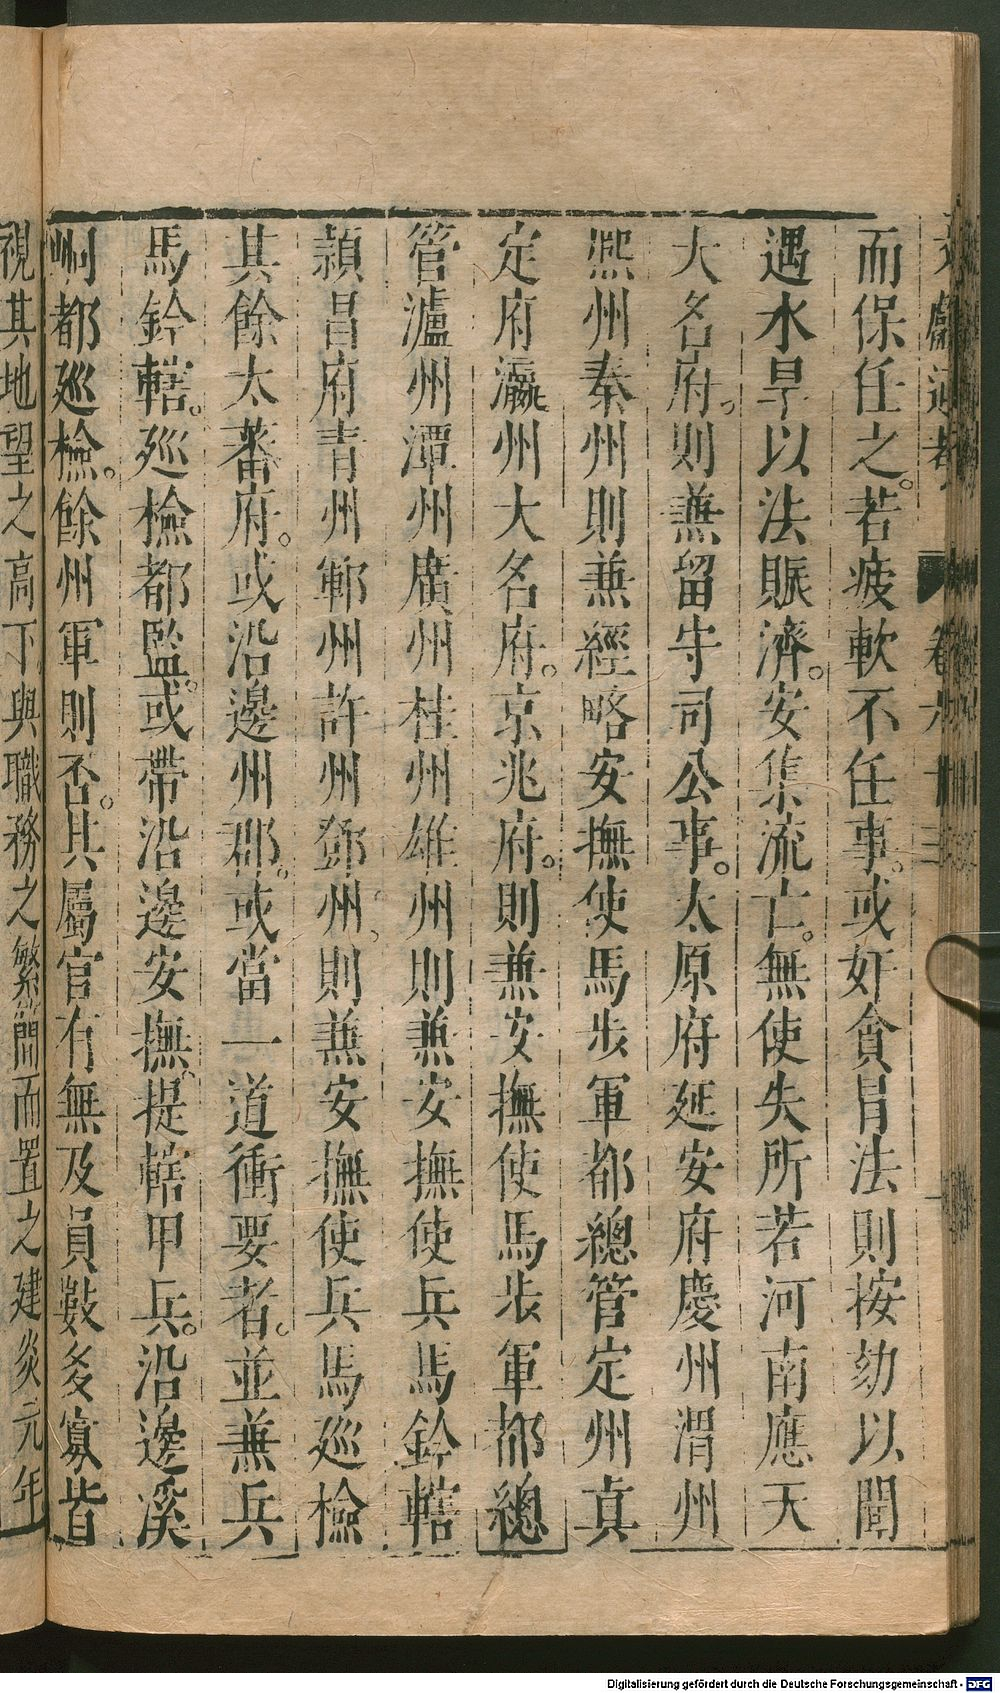 文獻通考 卷六十三
而保任之。若疲軟不任事。或奸貪冐法則按劾以聞
遇水旱以法賑濟。安集流亡。無使失所若河南應天
大名府。則兼留守司公事。太原府延安府慶州渭州
熙州秦州則兼經略安撫使馬步軍都總管定州真
定府瀛州大名府。京兆府。則兼安撫使馬步軍都總
管瀘州潭州廣州桂州雄州則兼安撫使兵馬鈐轄
潁昌府青州鄆州許州鄧州。則兼安撫使兵馬廵檢
其餘大藩府。或沿邊州郡。或當一道衝要者。並兼兵
馬鈐轄。廵檢都監。或帶沿邊安撫。提轄甲兵。沿邊溪
峒都廵檢。餘州軍則否。其屬官有無及員數多寡皆
視其地望之高下與職務之繁簡而置之建炎元年
Digitalisierung gefördert durch die Deutsche Forschungsgemeinschaft - DFG